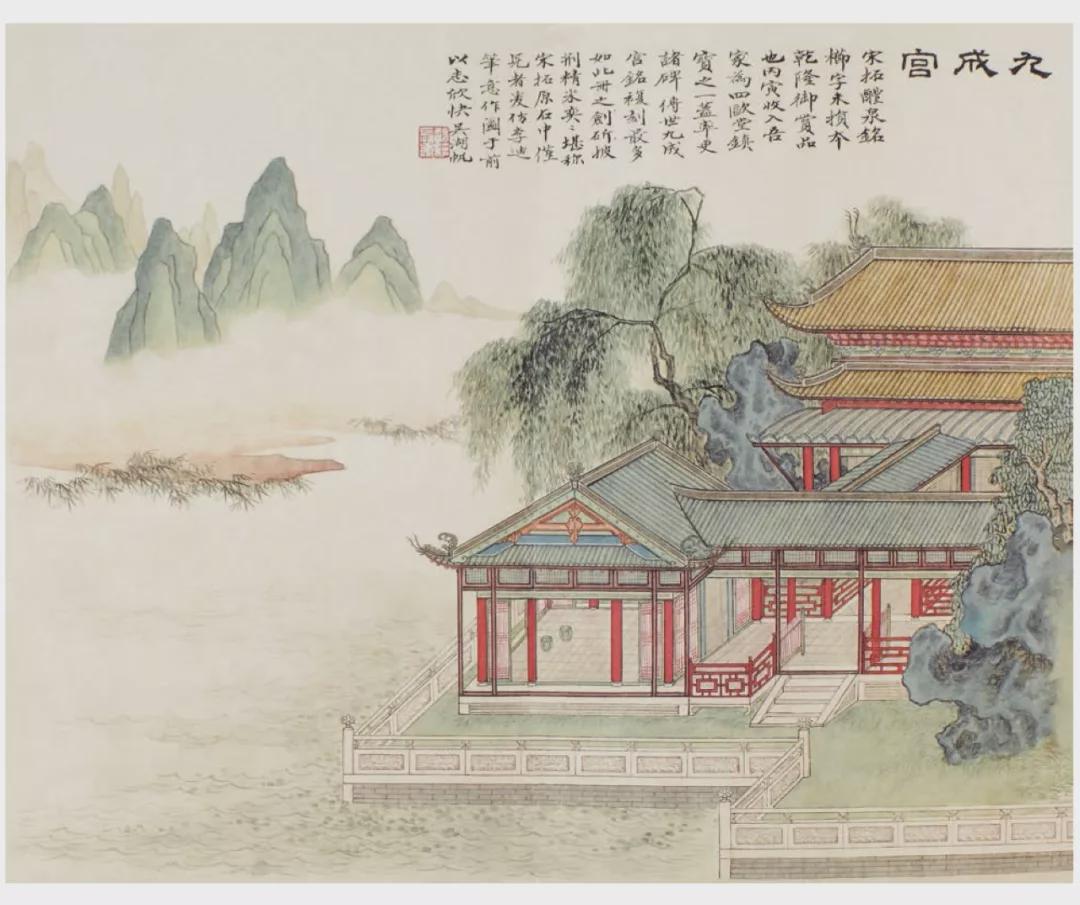 九成宮
宋拓醴泉銘
櫛字未損本
乾隆御賞品
也丙寅收入吾
家為四歐堂鎮
寶之一蓋率更
諸碑傳世九成
宮銘複刻最多
如此冊之創斫披
荆精采奕〻堪称
宋拓原石中僅
見者爰仿李迪
筆意作圖于前
以志欣快吴湖帆